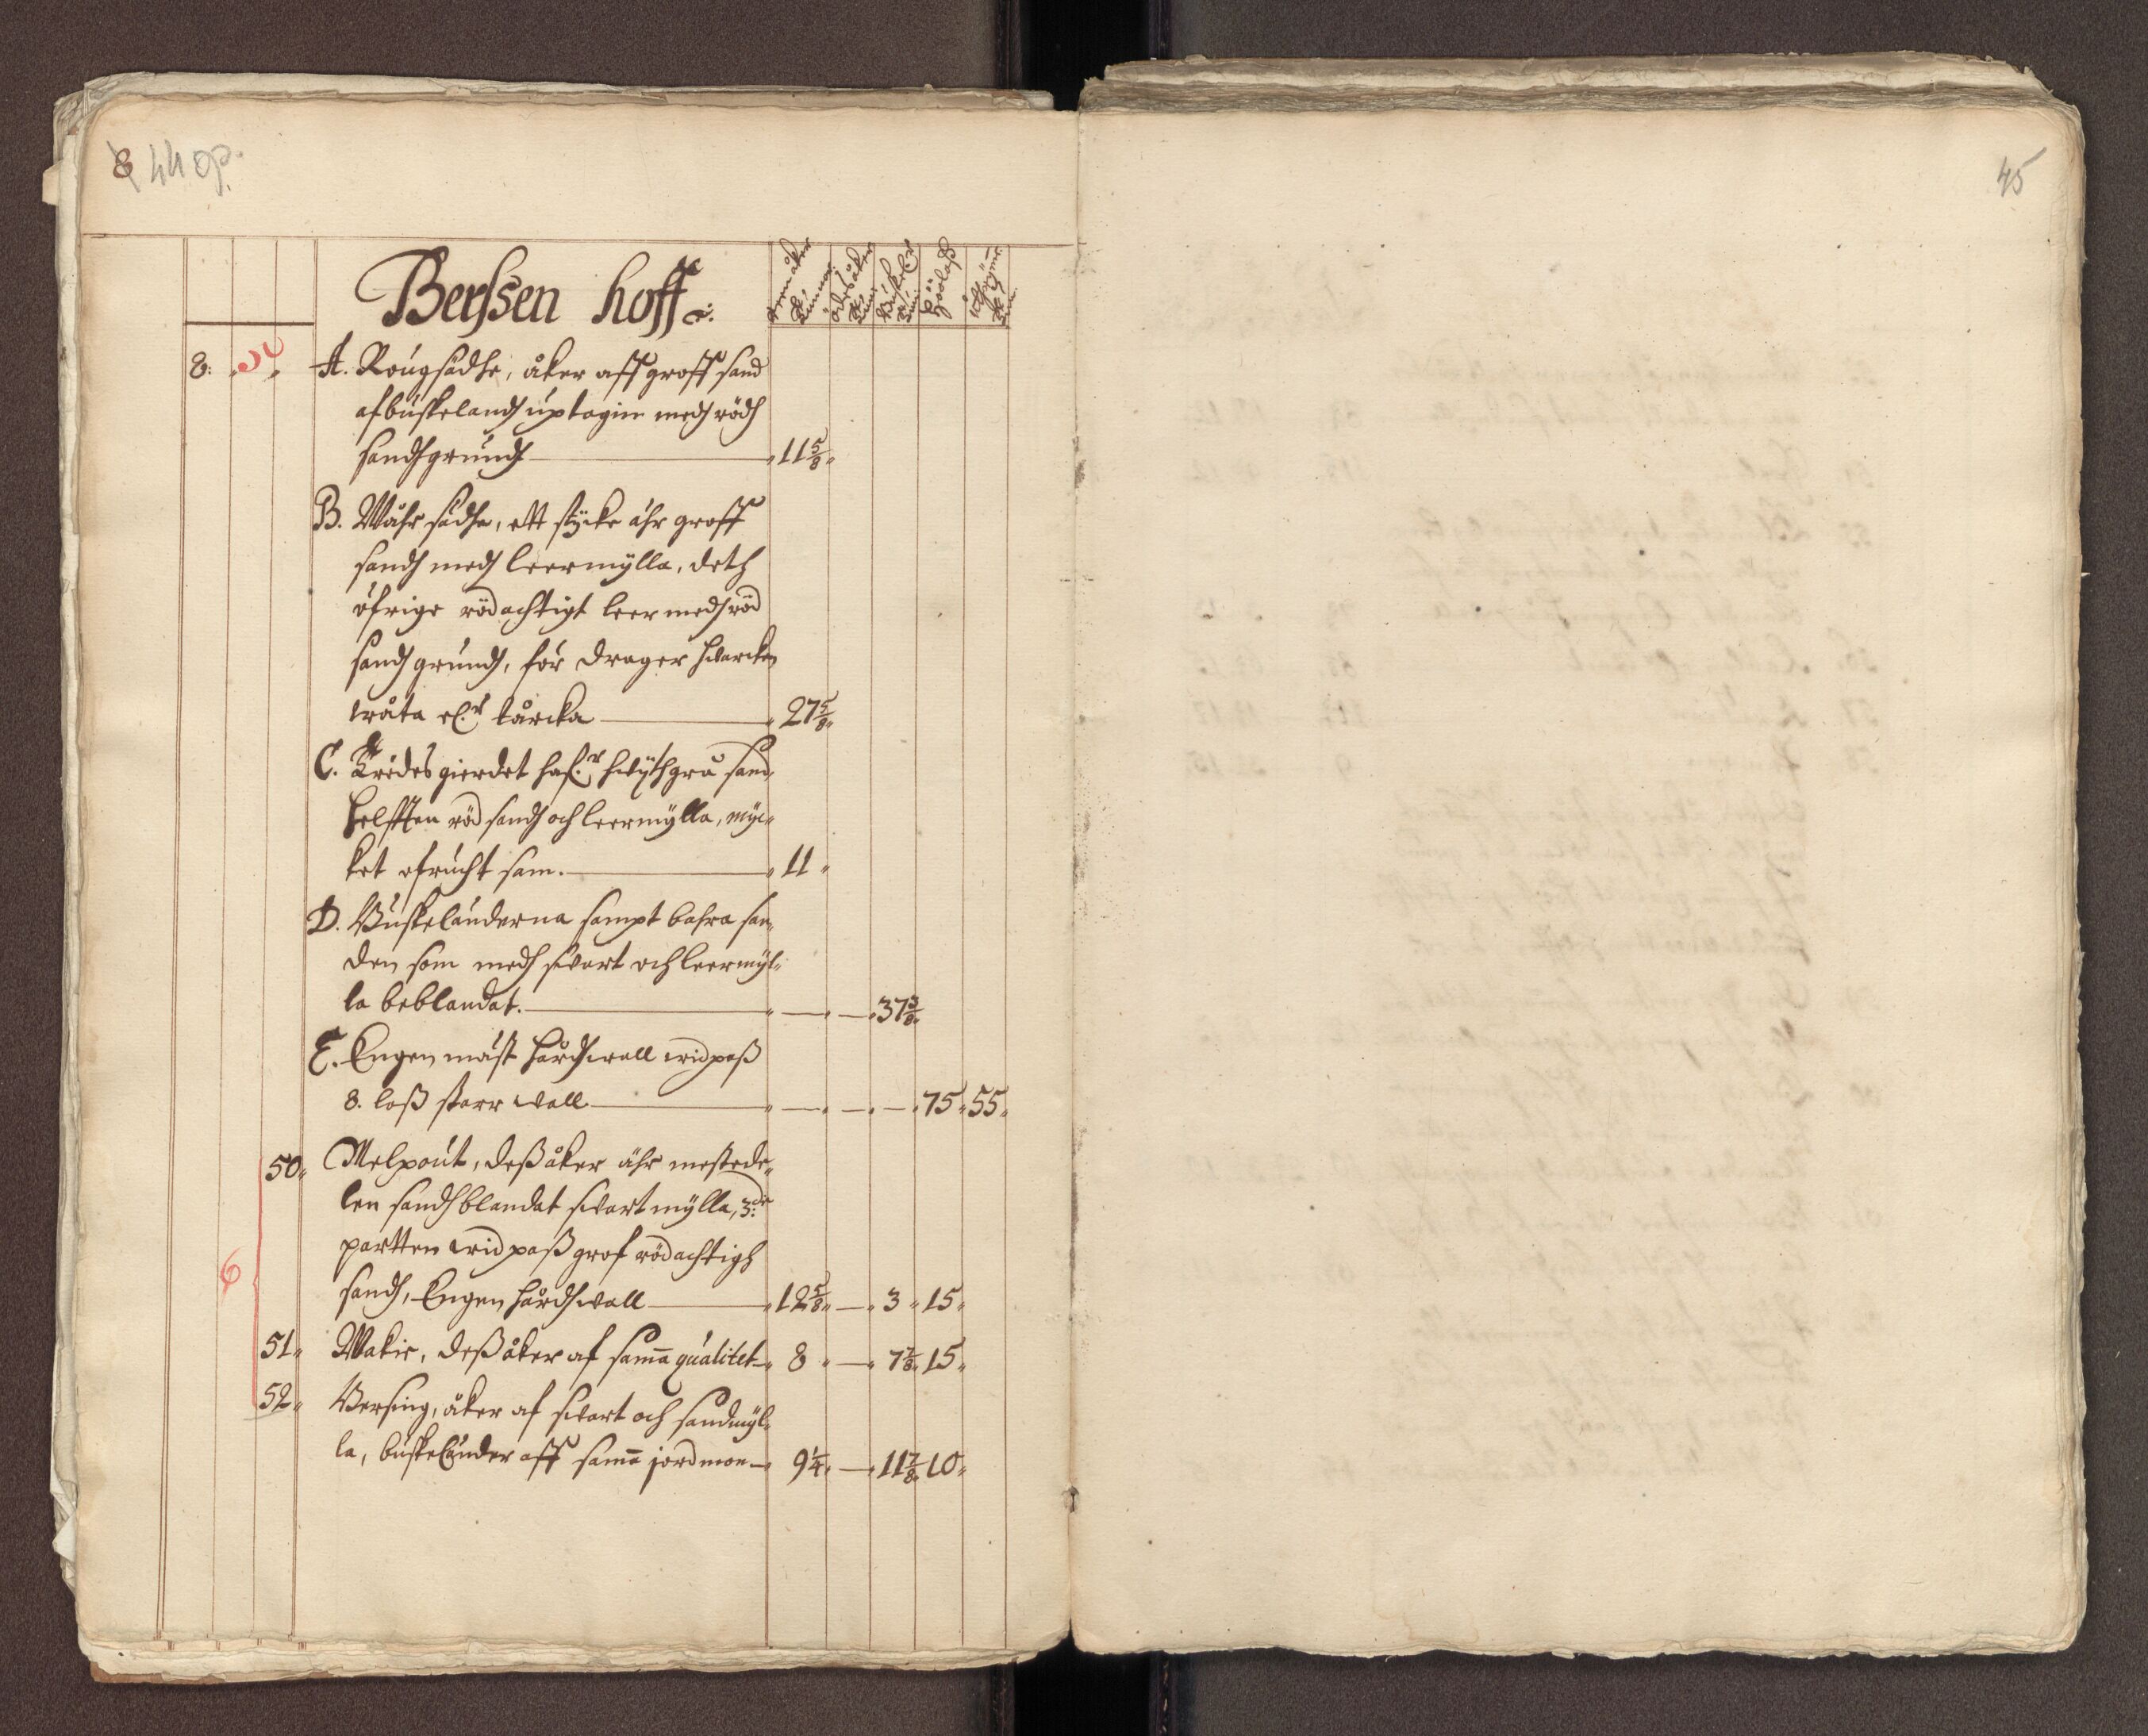 8 44 op.
45
Berssen hoff
8: A. Rougsädhe, åker aff groff sand
af buskelandh uptagin medh rödh
sandhgrundh 11 5/8
B. Wåhrsädhe, ett stycke ähr groff
sandh medh leermylla, deth
öfrige rödachtigt leer medh röd
sandhgrundh, fördrager hwarcken
wåta el.r tårcka 27 5/8
C. Trädesgierdet haf.r hwijthgrå sand,
helfften röd sandh och leermylla, myc-
ket ofruchtsam. 11
D. Buskeländerna sampt bahra san-
den som medh swart och leermyl-
la beblandat. 37 3/8
E. Engen mäst hårdhwall widpaß
8. laß starrwall 75 55
50 Melpout, deß åker ähr mestede-
len sandhblandat swartmylla, 3:de
partten widpaß grof rödachtigh
sandh, Engen hårdhwall 12 5/8 3 15
6
51 Wakir, deß åker af samma qualitet 8 7 7/8 15
52 Bersing, åker af swart och sandmyl-
la, buskeländer aff samma jordmon 9 1/4 11 7/8 10